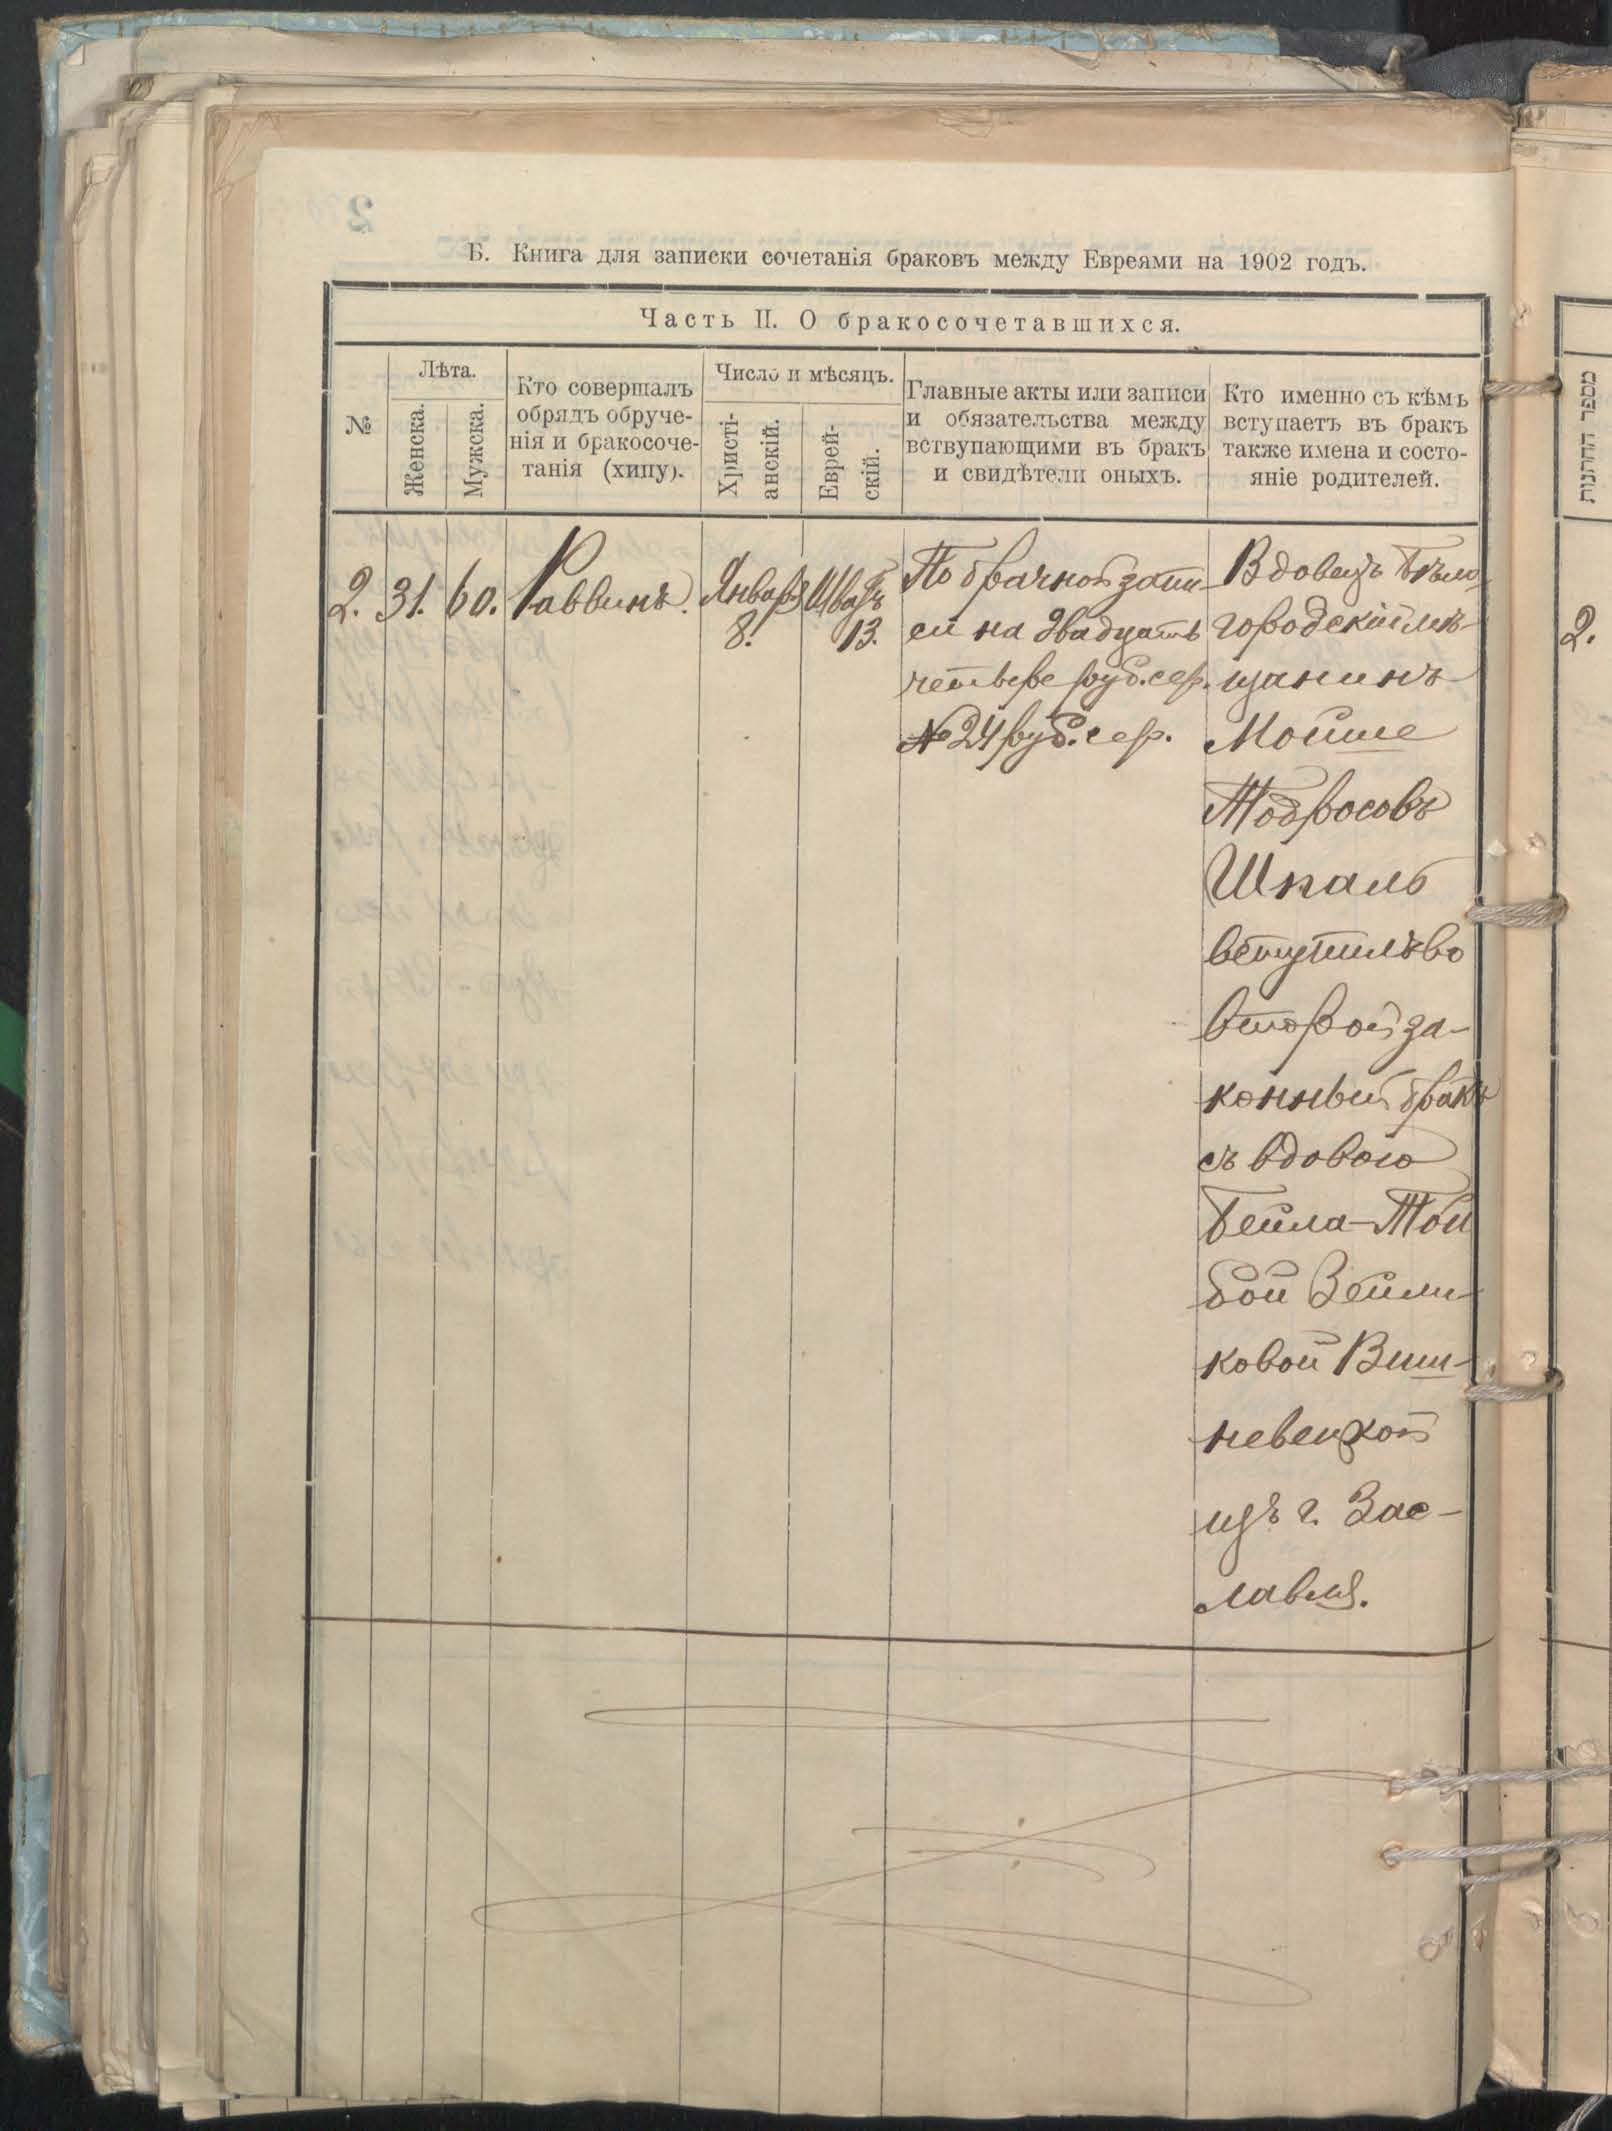 Б. Книга для записки сочетанія браковъ между Евреями на 1902 годъ.
Часть II. О бракосочетавшихся.
№
Лѣта.
Женска.
Мужска.
Кто совершалъ
обрядъ обруче-
нія и бракосоче-
танія (хипу).
Число и мѣсяцъ.
Христі-
анскій.
Еврей-
скій.
Главные акты или записи
и обязательства между
вствупающими въ бракъ
и свидѣтели оныхъ.
Кто именно съ кѣмъ
вступаетъ въ бракъ
также имена и состо-
яніе родителей.
2.
31.
60.
Раввинъ.
Января
8.
Шватъ
13.
По брачной запи-
си на двадцать
четыре руб. сер.
№ 24 руб. сер.
Вдовецъ Бѣло-
городскій мѣ-
щанинъ
Мойше
Тодросовъ
Шкаль
вступилъ во
второй за-
конный бракъ
съ вдовою
Бейла-Той
бой Зейли-
ковой Виш-
невецкой
изъ г. Зас-
лавля.
מספר החתונות
2.